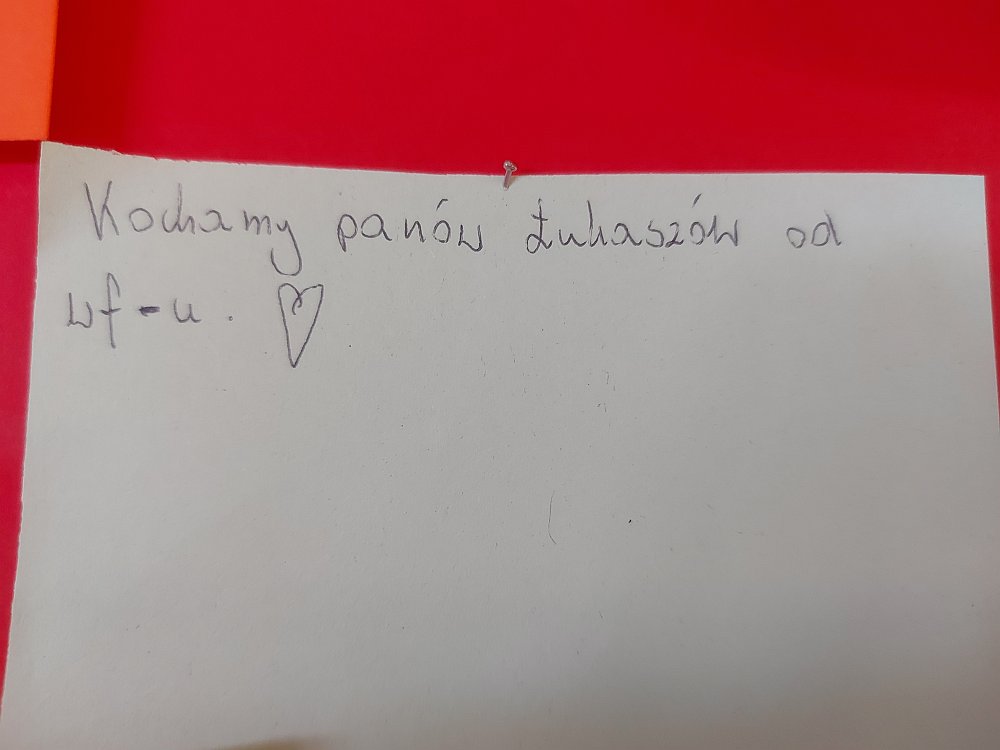 Kochamy panów Łukaszów od
wf-u.